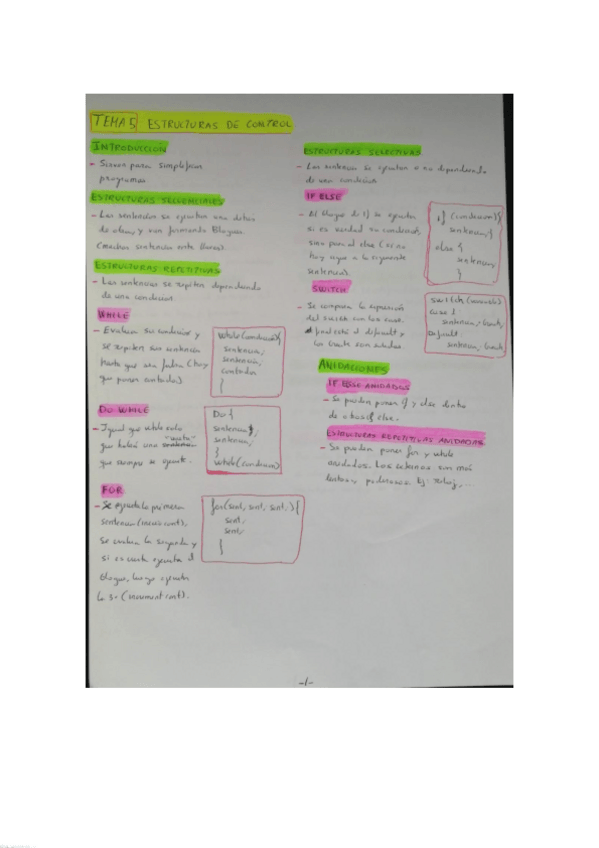 TEMA 5 ESTRUCTURAS DE CONTROL
INTRODUCCIÓN
- Sirven para simplificar
programas.
ESTRUCTURAS SECUENCIALES
- Las sentencias se ejecutan una detrás
de otra, y van formando Bloques
(muchas sentencias entre llaves).
ESTRUCTURAS REPETITIVAS
- Las sentencias se repiten dependiendo
de una condición.
WHILE
- Evalúan su condición y
se repiten sus sentencias
hasta que sea falsa (hay
que poner contador)
while(condición){
sentencia;
sentencia;
contador
}
DO WHILE
- Igual que while solo
que habrá una
que siempre se ejecute.
Do {
sentencia;
sentencia;
}
while(condicion)
FOR
- Se ejecuta la primera
sentencia (inicio cont),
se evalua la segunda y
si es cierta ejecuta el
Bloque, luego ejecuta
la 3ª (increment cont).
for(sent; sent; sent;){
sent;
sent;
}
ESTRUCTURAS SELECTIVAS
- Las sentencias se ejecutan o no dependiendo
de una condición.
IF ELSE
- El bloque de if se ejecuta
si es verdad su condición,
sino pasa al else (si no
hay sigue a la siguiente
sentencia).
if (condicion){
sentencia;}
else {
sentencia;
}
SWITCH
- Se compara la expresión
del switch con los case.
Al final está el default y
los break son salidas.
switch(variable)
case 1
sentencia; break;
Default:
sentencia; break;
ANIDACIONES
IF ELSE ANIDADOS
- Se pueden poner if y else dentro
de otros if else.
ESTRUCTURAS REPETITIVAS ANIDADAS
- Se pueden poner for y while
anidados. Los externos son más
lentos, Ej: Reloj,...
-1-